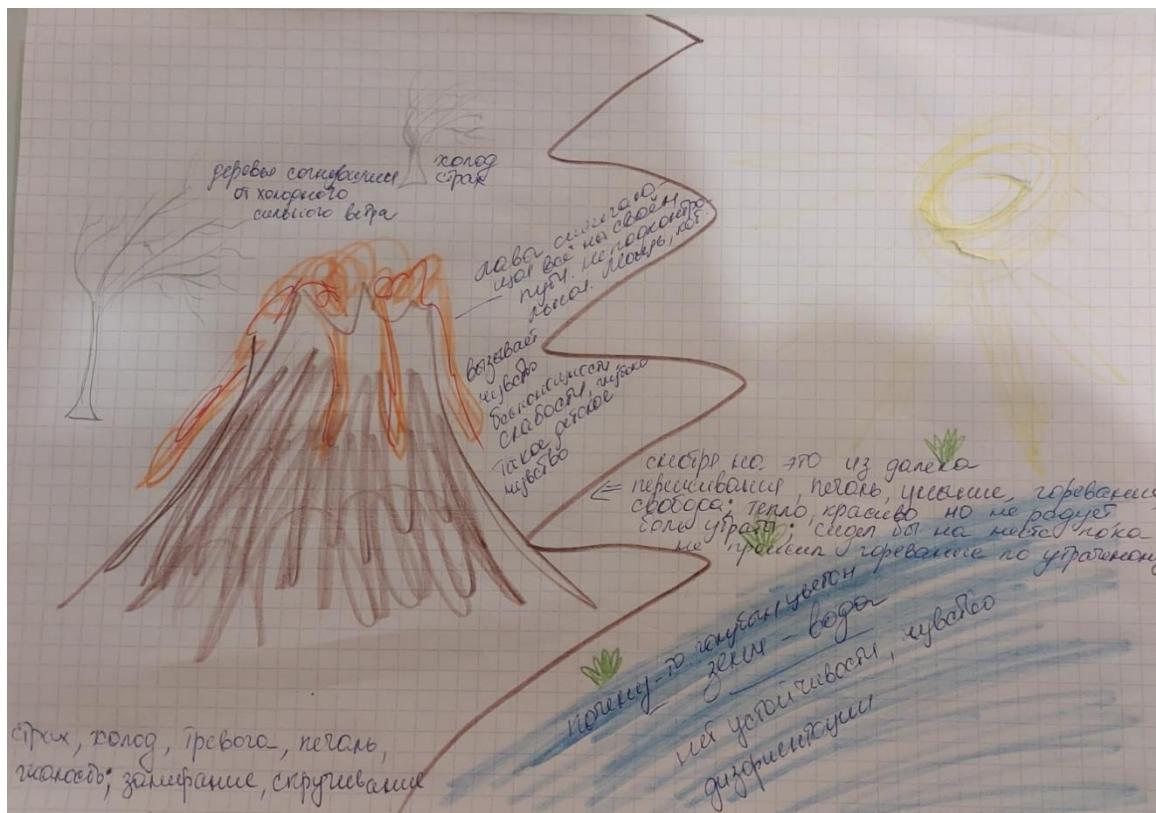 деревья согнувшиеся
от холодного
сильного ветра
холод
страх
лава сжигаю-
щая всё на своём
пути. неподконтро
льная. Мощь, кот.
вызывает
чувство
беспомощности,
слабости, глубоко
такое детское
чувство
смотря на это из далека
переживания, печаль, уныние, горевание
свобода; тепло, красиво но не радует
боль утраты; сидел бы на месте пока
не прожил горевание по утраченому
почему-то голубым цветом
земля - вода
нет устойчивости, чувство
дизориентации
страх, холод, тревога, печаль,
жалость; замирание, скручивание